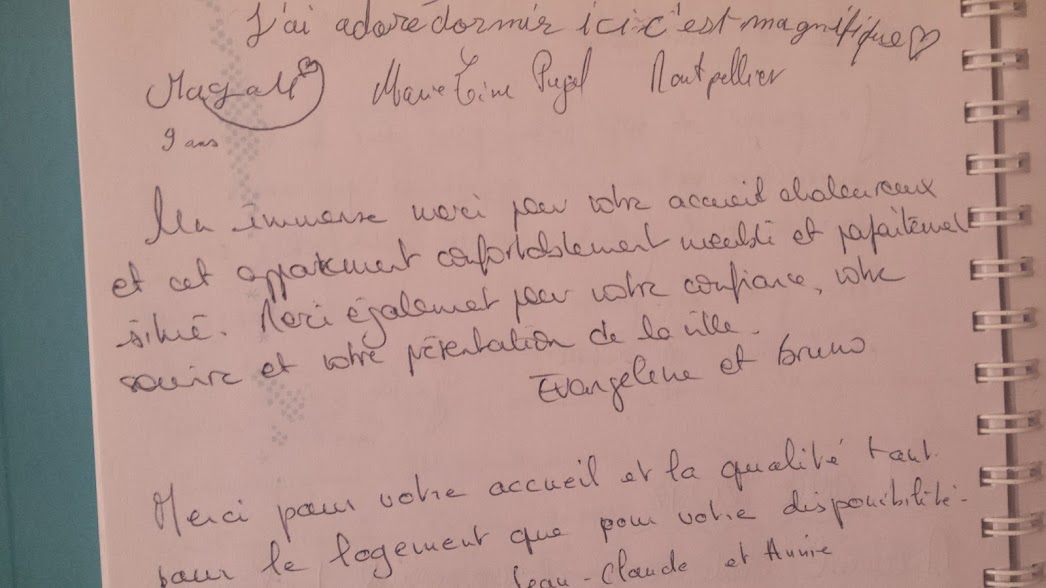 J'ai adoré dormir ici c'est magnifique♡
Magali Marie Pujol Montpellier
9 ans
Un immense merci pour votre accueil chaleureux
et cet appartement confortablement meublé et parfaitement
situé. Merci également pour votre confiance, votre
sourire et votre présentation de la ville.
Evangeline et bruno
Merci pour votre accueil et la qualité tant
pour le logement que pour votre disponibilité.
Jean-Claude et Annie